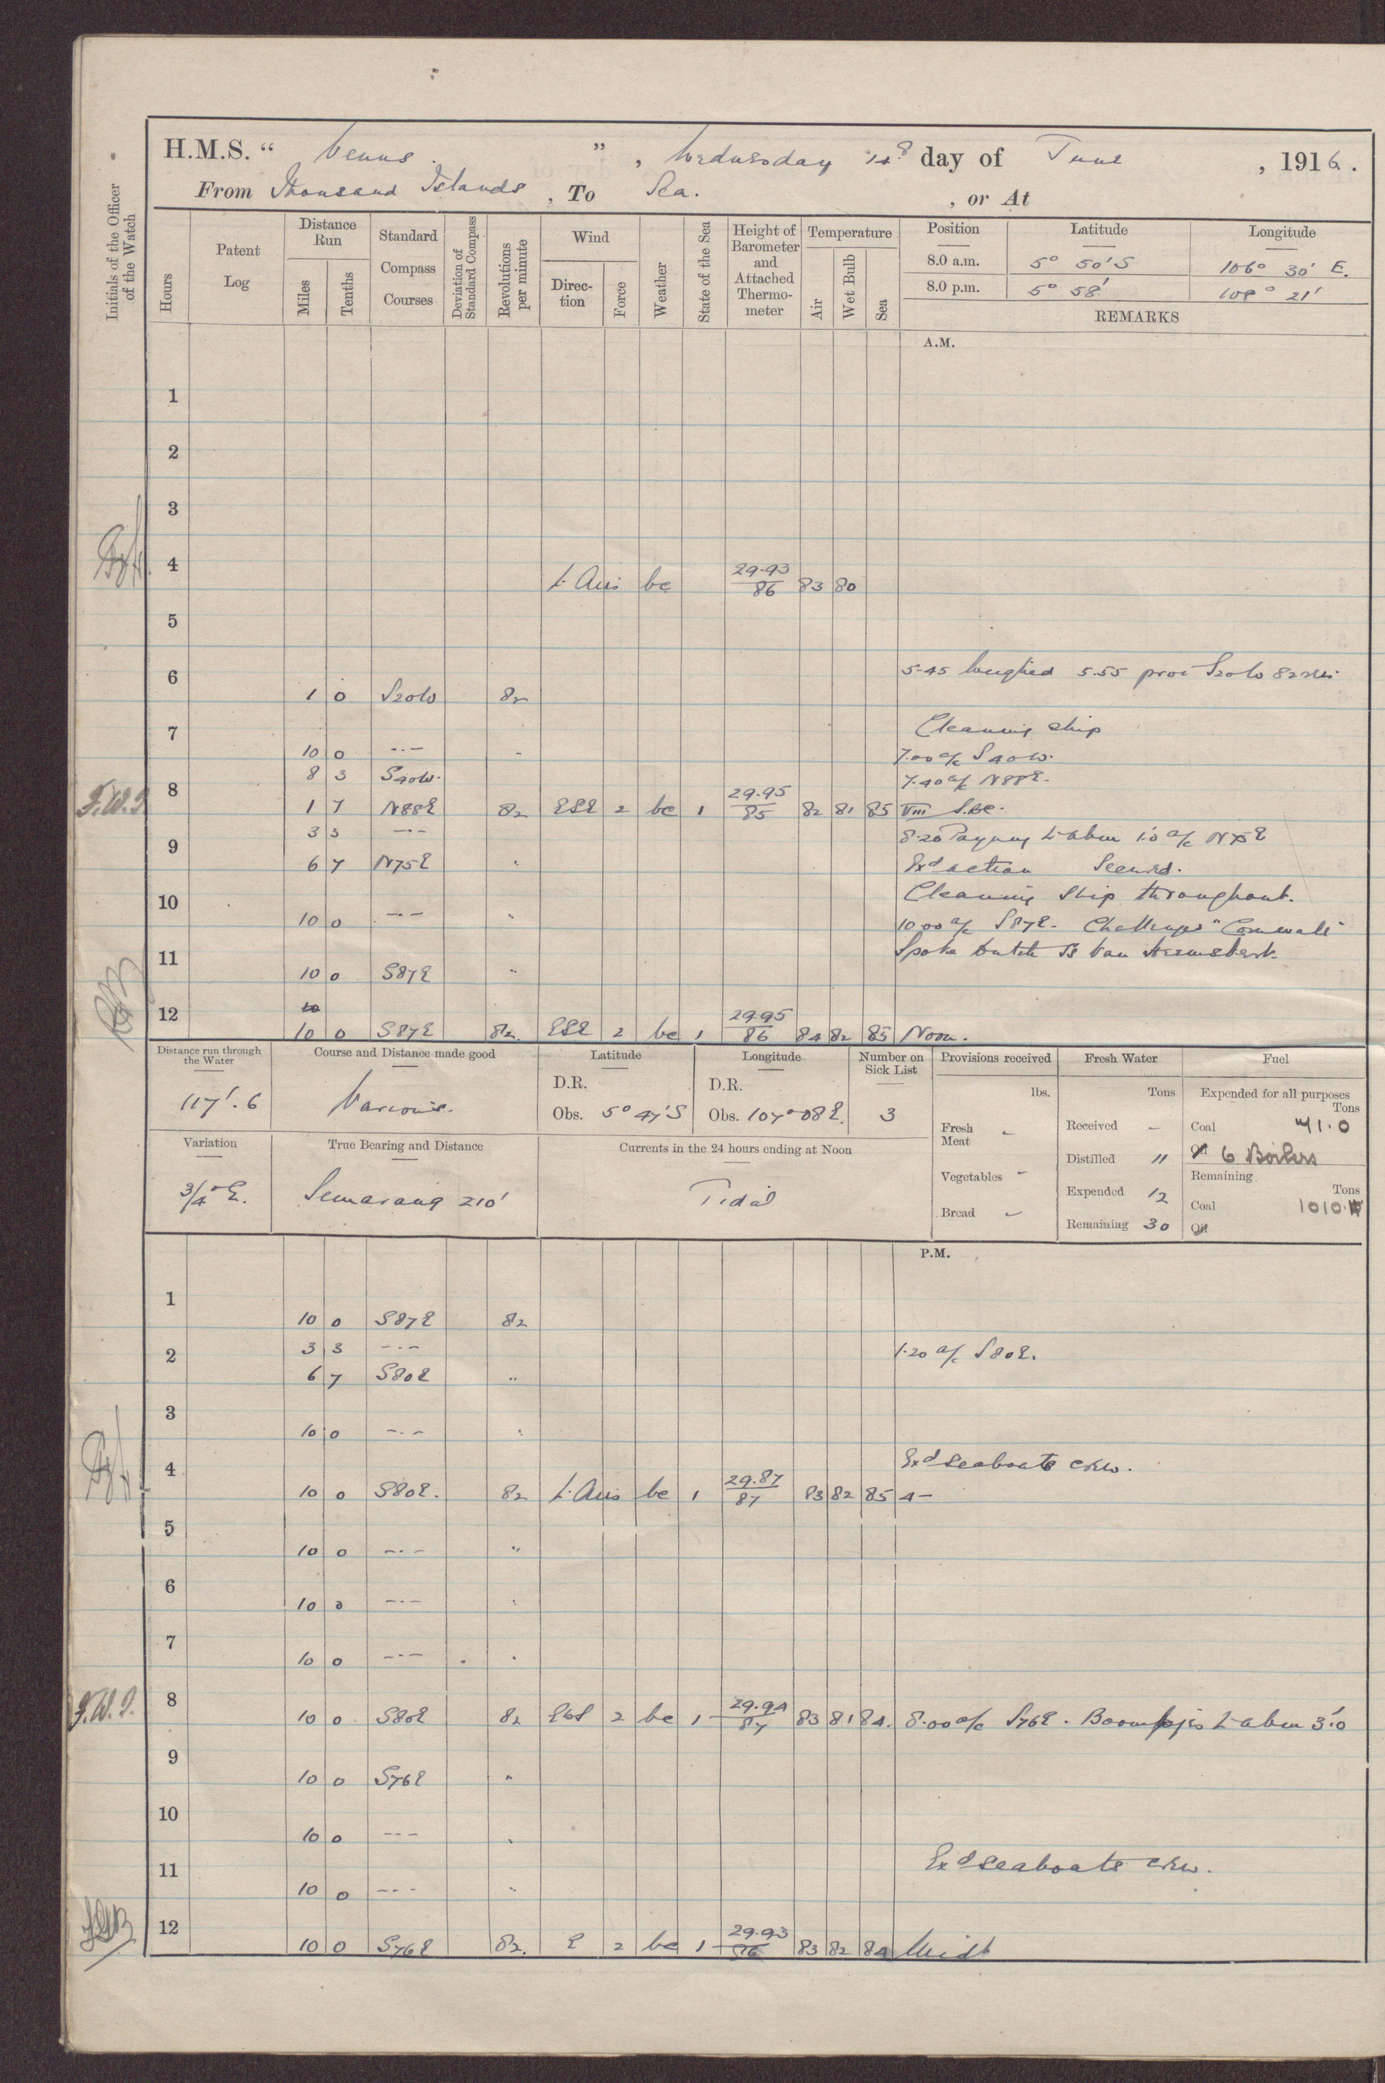 H.M.S. “ Venus. ” , Wednesday 14th day of June , 1916.
From Thousand Islands , To Sea. , or At
Initials of the Officer of the Watch
Hours
Patent Log
Distance Run
Miles
Tenths
Standard Compass Courses
Deviation of Standard Compass
Revolutions per minute
Wind
Direction
Force
Weather
State of the Sea
Height of Barometer and Attached Thermometer
Temperature
Air
Wet Bulb
Sea
Position Latitude Longitude
8.0 a.m. 5° 50' S 106° 30' E.
8.0 p.m. 5° 58' 108° 21'
REMARKS
A.M.
1
2
3
4 Lt Airs bc 29.93/86 83 80
5
6 5.45 Weighed 5.55 proc S20W 82 revs.
1 0 S20W 82
7 Cleaning ship
10 0 -.- " 7.00 a/c S40W.
8 3 S40W. 7.40 a/c N88E.
8 1 7 N88E 82 ESE 2 bc 1 29.95/85 82 81 85 VIII S.bc.
3 3 -.- 8.20 Payung Lt abm 1.0 a/c N75E
9 6 7 N75E " Exd action Secured.
10 Cleaning Ship throughout.
10 0 -.- " 10.00 a/c S87E. Challenged "Cornwall"
11 Spoke Dutch SS Van
10 0 S87E "
12 10 0 S87E 82 ESE 2 bc 1 29.95/86 84 82 85 Noon.
Distance run through the Water
117'.6
Course and Distance made good
Various.
Latitude
D.R.
Obs. 5° 47' S
Longitude
D.R.
Obs. 107° 08 E.
Number on Sick List
3
Provisions received
lbs.
Fresh Meat -
Vegetables -
Bread -
Fresh Water
Tons
Received -
Distilled 11
Expended 12
Remaining 30
Fuel
Expended for all purposes
Tons
Coal 41.0
Oil 6 Boilers
Remaining
Tons
Coal 1010
Oil
Variation
3/4° E.
True Bearing and Distance
Semarang 210'
Currents in the 24 hours ending at Noon
Tidal
P.M.
1 10 0 S87E 82
3 3 -.- 1.20 a/c S80E.
2 6 7 S80E "
3 10 0 -.- "
4 Exd seaboats crew.
10 0 S80E. 82 Lt Airs bc 1 29.87/87 83 82 85 4-
5 10 0 -.- "
6 10 0 -.- "
7 10 0 -.- "
8 10 0 S80E 82 EbS 2 bc 1 29.94/87 83 81 84. 8.00 a/c S76E. Boompjes Lt abm 3'.0
9 10 0 S76E "
10 10 0 --- "
11 Exd seaboats crew.
10 0 -.- "
12 10 0 S76E 82. E 2 bc 1 29.93/86 83 82 84 Midt